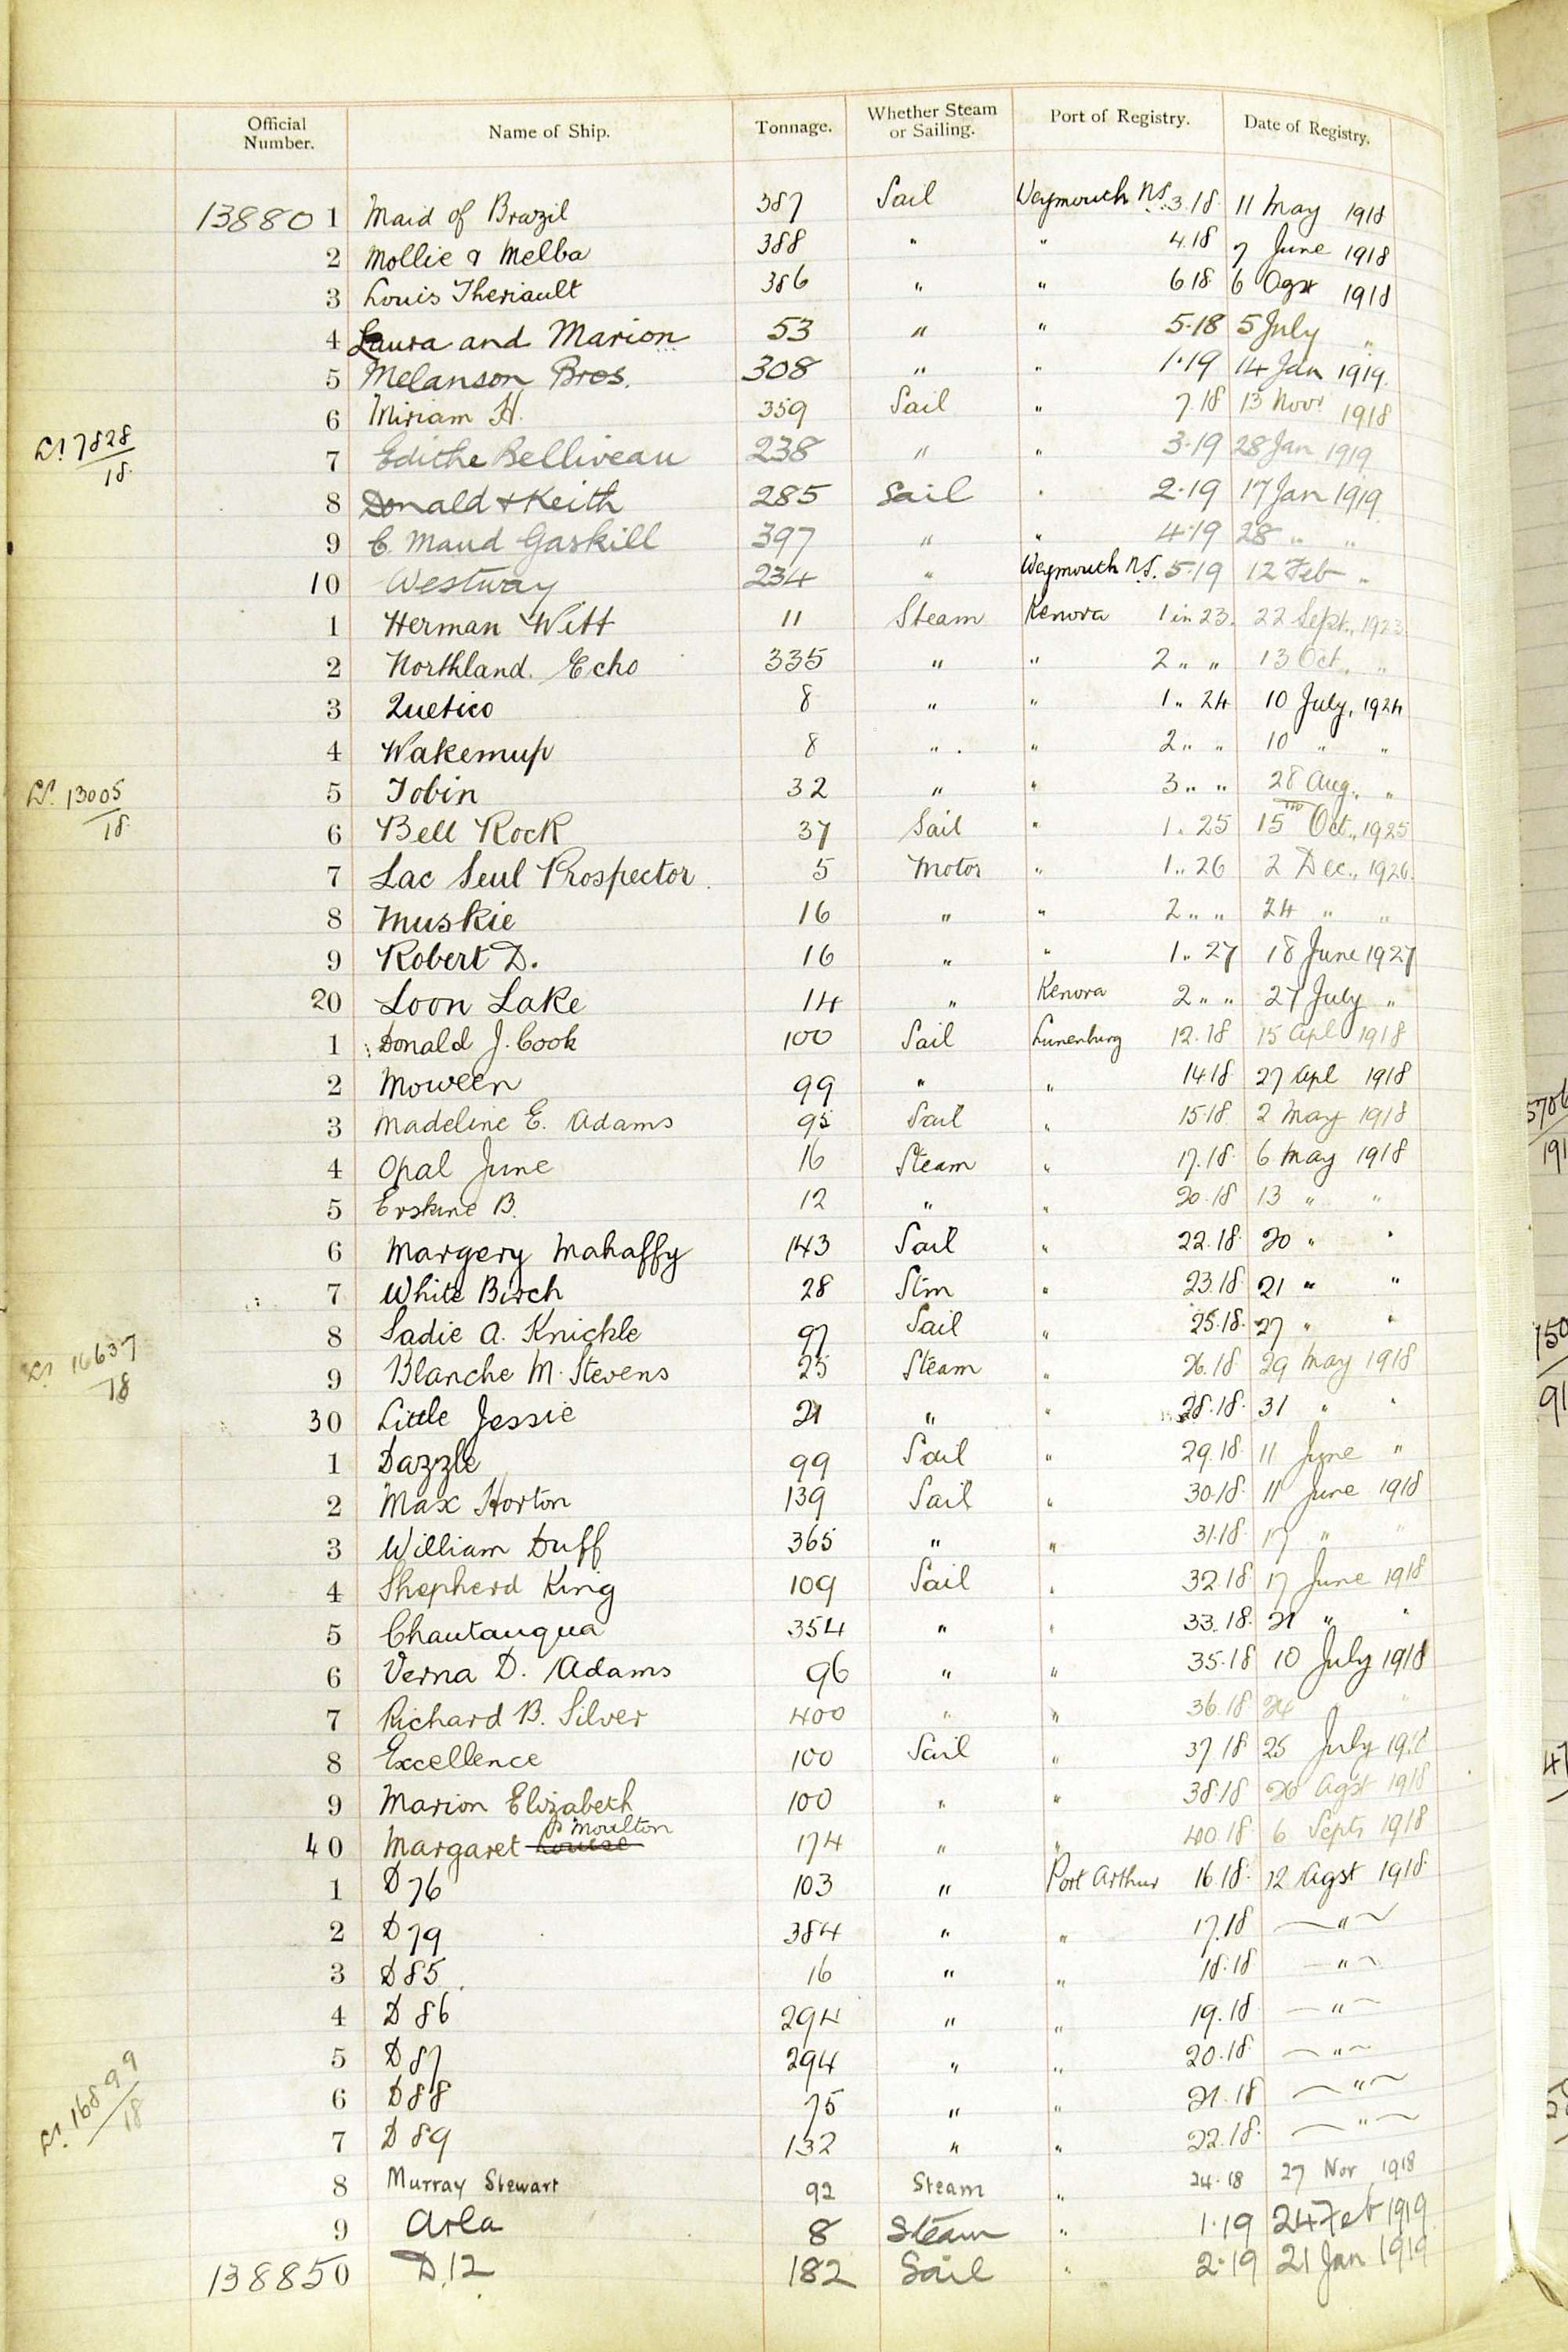 Official Number. Name of Ship. Tonnage. Whether Steam or Sailing. Port of Registry. Date of Registry.
138801 Maid of Brazil 387 Sail Weymouth N.S. 3.18. 11 May 1918
2 Mollie & Melba 388 " " 4.18 7 June 1918
3 Louis Theriault 386 " " 6 18. 6 Agst 1918
4 Laura and Marion 53 " " 5.18 5 July "
5 Melanson Bros. 308 " " 1.19 14 Jan 1919.
6 Miriam H. 359 Sail " 7.18 13 Novr 1918
Lr. 7828/18.
7 Edithe Belliveau 238 " " 3.19 28 Jan 1919
8 Donald & Keith 285 Sail " 2.19 17 Jan 1919
9 C. Maud Gaskill 397 " " 4.19 28 " "
10 Westway 234 " Weymouth N.S. 5.19 12 Feb "
1 Herman Witt 11 Steam Kenora 1 in 23. 22 Sept., 1923.
2 Northland Echo 335 " " 2 " " 13 Oct., "
3 Quetico 8 " " 1 " 24 10 July, 1924
4 Wakemup 8 " " 2 " " 10 " "
Lr. 13005/18.
5 Tobin 32 " " 3 " " 28 Aug., "
6 Bell Rock 37 Sail " 1 " 25 15 Oct., 1925
7 Lac Seul Prospector. 5 Motor " 1 " 26 2 Dec., 1926.
8 Muskie 16 " " 2 " " 24 " "
9 Robert D. 16 " " 1 " 27 18 June 1927
20 Loon Lake 14 " Kenora 2 " " 27 July "
1 Donald J. Cook 100 Sail Lunenburg 12.18 15 Apl 1918
2 Moween 99 " " 14.18 27 Apl 1918
3 Madeline E. Adams 95 Sail " 15.18 2 May 1918
4 Opal June 16 Steam " 17.18. 6 May 1918
5 Erskine B. 12 " " 20.18 13 " "
6 Margery Mahaffy 143 Sail " 22.18. 20 " "
7 White Birch 28 Stm " 23.18. 21 " "
8 Sadie A. Knickle 97 Sail " 25.18. 27 " "
Lr. 16637/18
9 Blanche M. Stevens 25 Steam " 26.18 29 May 1918
30 Little Jessie 21 " " 28.18. 31 " "
1 Dazzle 99 Sail " 29.18. 11 June "
2 Max Horton 139 Sail " 30.18. 11 June 1918
3 William Duff 365 " " 31.18. 17 " "
4 Shepherd King 109 Sail " 32.18 17 June 1918
5 Chautauqua 354 " " 33.18. 21 " "
6 Verna D. Adams 96 " " 35.18 10 July 1918
7 Richard B. Silver 400 " " 36.18 24 " "
8 Excellence 100 Sail " 37.18 25 July 1918
9 Marion Elizabeth 100 " " 38.18 26 Agst 1918
40 Margaret Louise Moulton 174 " " 40.18. 6 Septr 1918
1 D 76 103 " Port Arthur 16.18. 12 Agst 1918.
2 D 79 384 " " 17.18 — " —
3 D 85 16 " " 18.18 — " —
4 D 86 294 " " 19.18 — " —
5 D 87 294 " " 20.18. — " —
Lr. 16899/18
6 D 88 75 " " 21.18 — " —
7 D 89 132 " " 22.18. — " —
8 Murray Stewart 92 Steam " 24.18 27 Nov 1918
9 Arla 8 Steam " 1.19 24 Feb 1919
138850 D.12 182 Sail " 2.19 21 Jan 1919